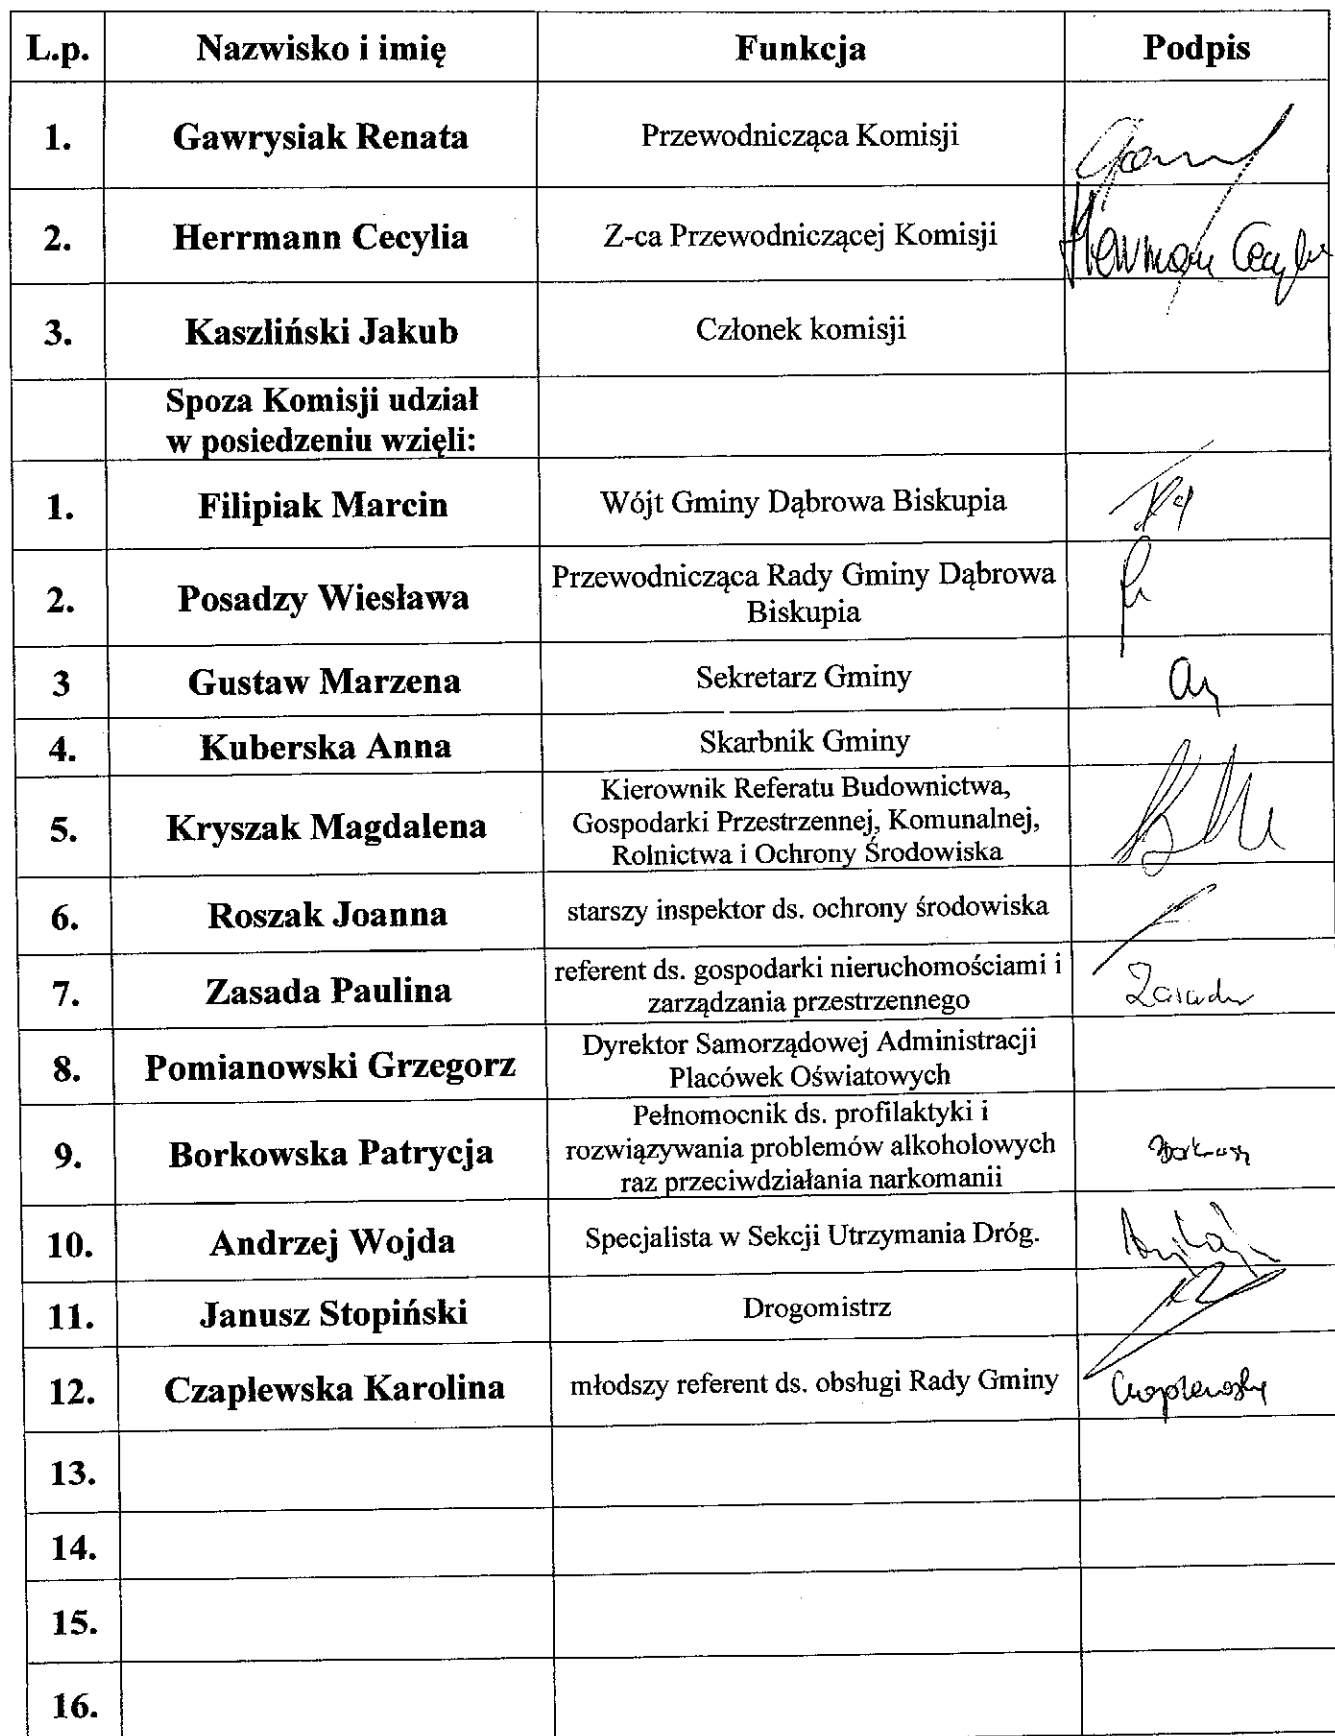 L.p. Nazwisko i imię Funkcja Podpis
1. Gawrysiak Renata Przewodnicząca Komisji
2. Herrmann Cecylia Z-ca Przewodniczącej Komisji Herrmann Cecylia
3. Kaszliński Jakub Członek komisji
Spoza Komisji udział
w posiedzeniu wzięli:
1. Filipiak Marcin Wójt Gminy Dąbrowa Biskupia
2. Posadzy Wiesława Przewodnicząca Rady Gminy Dąbrowa
Biskupia
3 Gustaw Marzena Sekretarz Gminy
4. Kuberska Anna Skarbnik Gminy
5. Kryszak Magdalena Kierownik Referatu Budownictwa,
Gospodarki Przestrzennej, Komunalnej,
Rolnictwa i Ochrony Środowiska
6. Roszak Joanna starszy inspektor ds. ochrony środowiska
7. Zasada Paulina referent ds. gospodarki nieruchomościami i
zarządzania przestrzennego Zasada
8. Pomianowski Grzegorz Dyrektor Samorządowej Administracji
Placówek Oświatowych
9. Borkowska Patrycja Pełnomocnik ds. profilaktyki i
rozwiązywania problemów alkoholowych
raz przeciwdziałania narkomanii
10. Andrzej Wojda Specjalista w Sekcji Utrzymania Dróg.
11. Janusz Stopiński Drogomistrz
12. Czaplewska Karolina młodszy referent ds. obsługi Rady Gminy Czaplewska
13.
14.
15.
16.